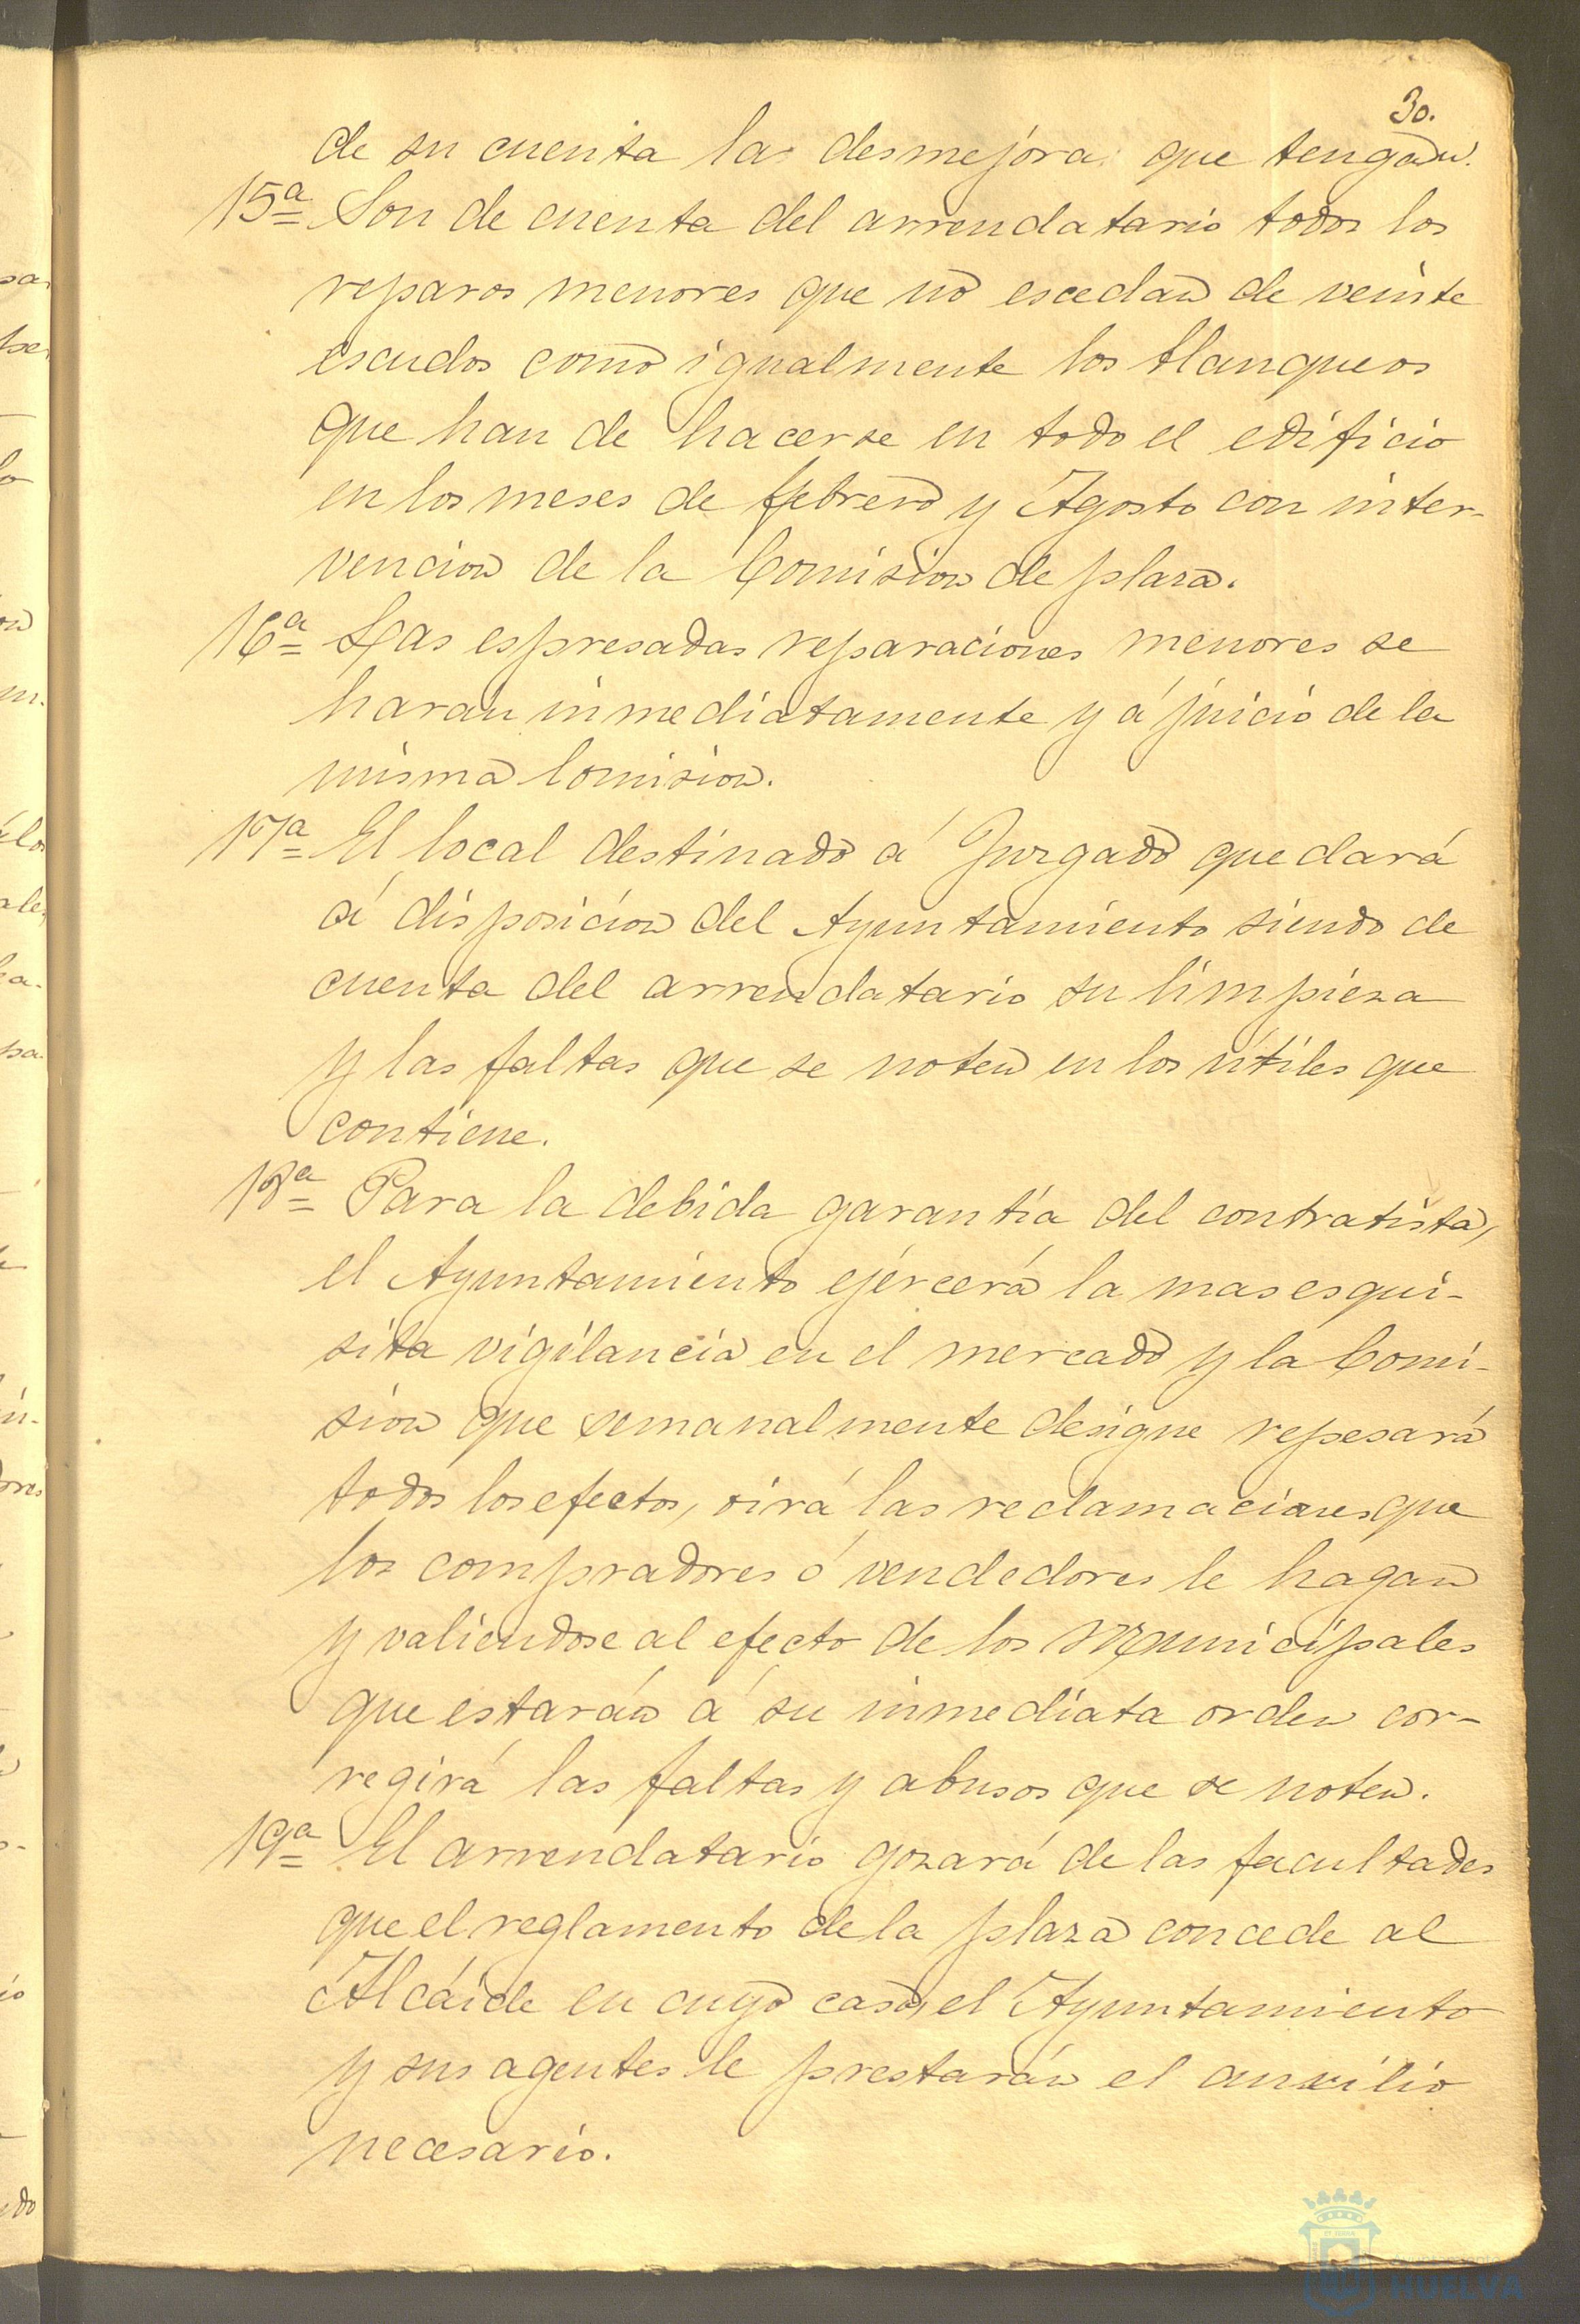 30.
de su cuenta las desmejoras que tengan.
15ª Son de cuenta del arrendatario todos los
reparos menores que no escedan de veinte
escudos como igualmente los blanqueos
que han de hacerse en todo el edificio
en los meses de febrero y Agosto con inter-
vencion de la Comision de plaza.
16ª Las espresadas reparaciones menores se
harán inmediatamente y á juicio de la
misma Comision.
17ª El local destinado á Juzgado quedará
á disposicion del Ayuntamiento siendo de
cuenta del arrendatario su limpieza
y las faltas que se noten en los útiles que
contiene.
18ª Para la debida garantía del contratista,
el Ayuntamiento ejercerá la mas esqui-
sita vigilancia en el mercado y la Comi-
sion que semanalmente designe repesará
todos los efectos, oirá las reclamaciones que
los compradores ó vendedores le hagan
y valiendose al efecto de los Municipales
que estarán á su inmediata orden cor-
regirá las faltas y abusos que se noten.
19ª El arrendatario gozará de las facultades
que el reglamento de la plaza concede al
Alcáide en cuyo caso, el Ayuntamiento
y sus agentes le prestarán el ausilio
necesario.
HUELVA